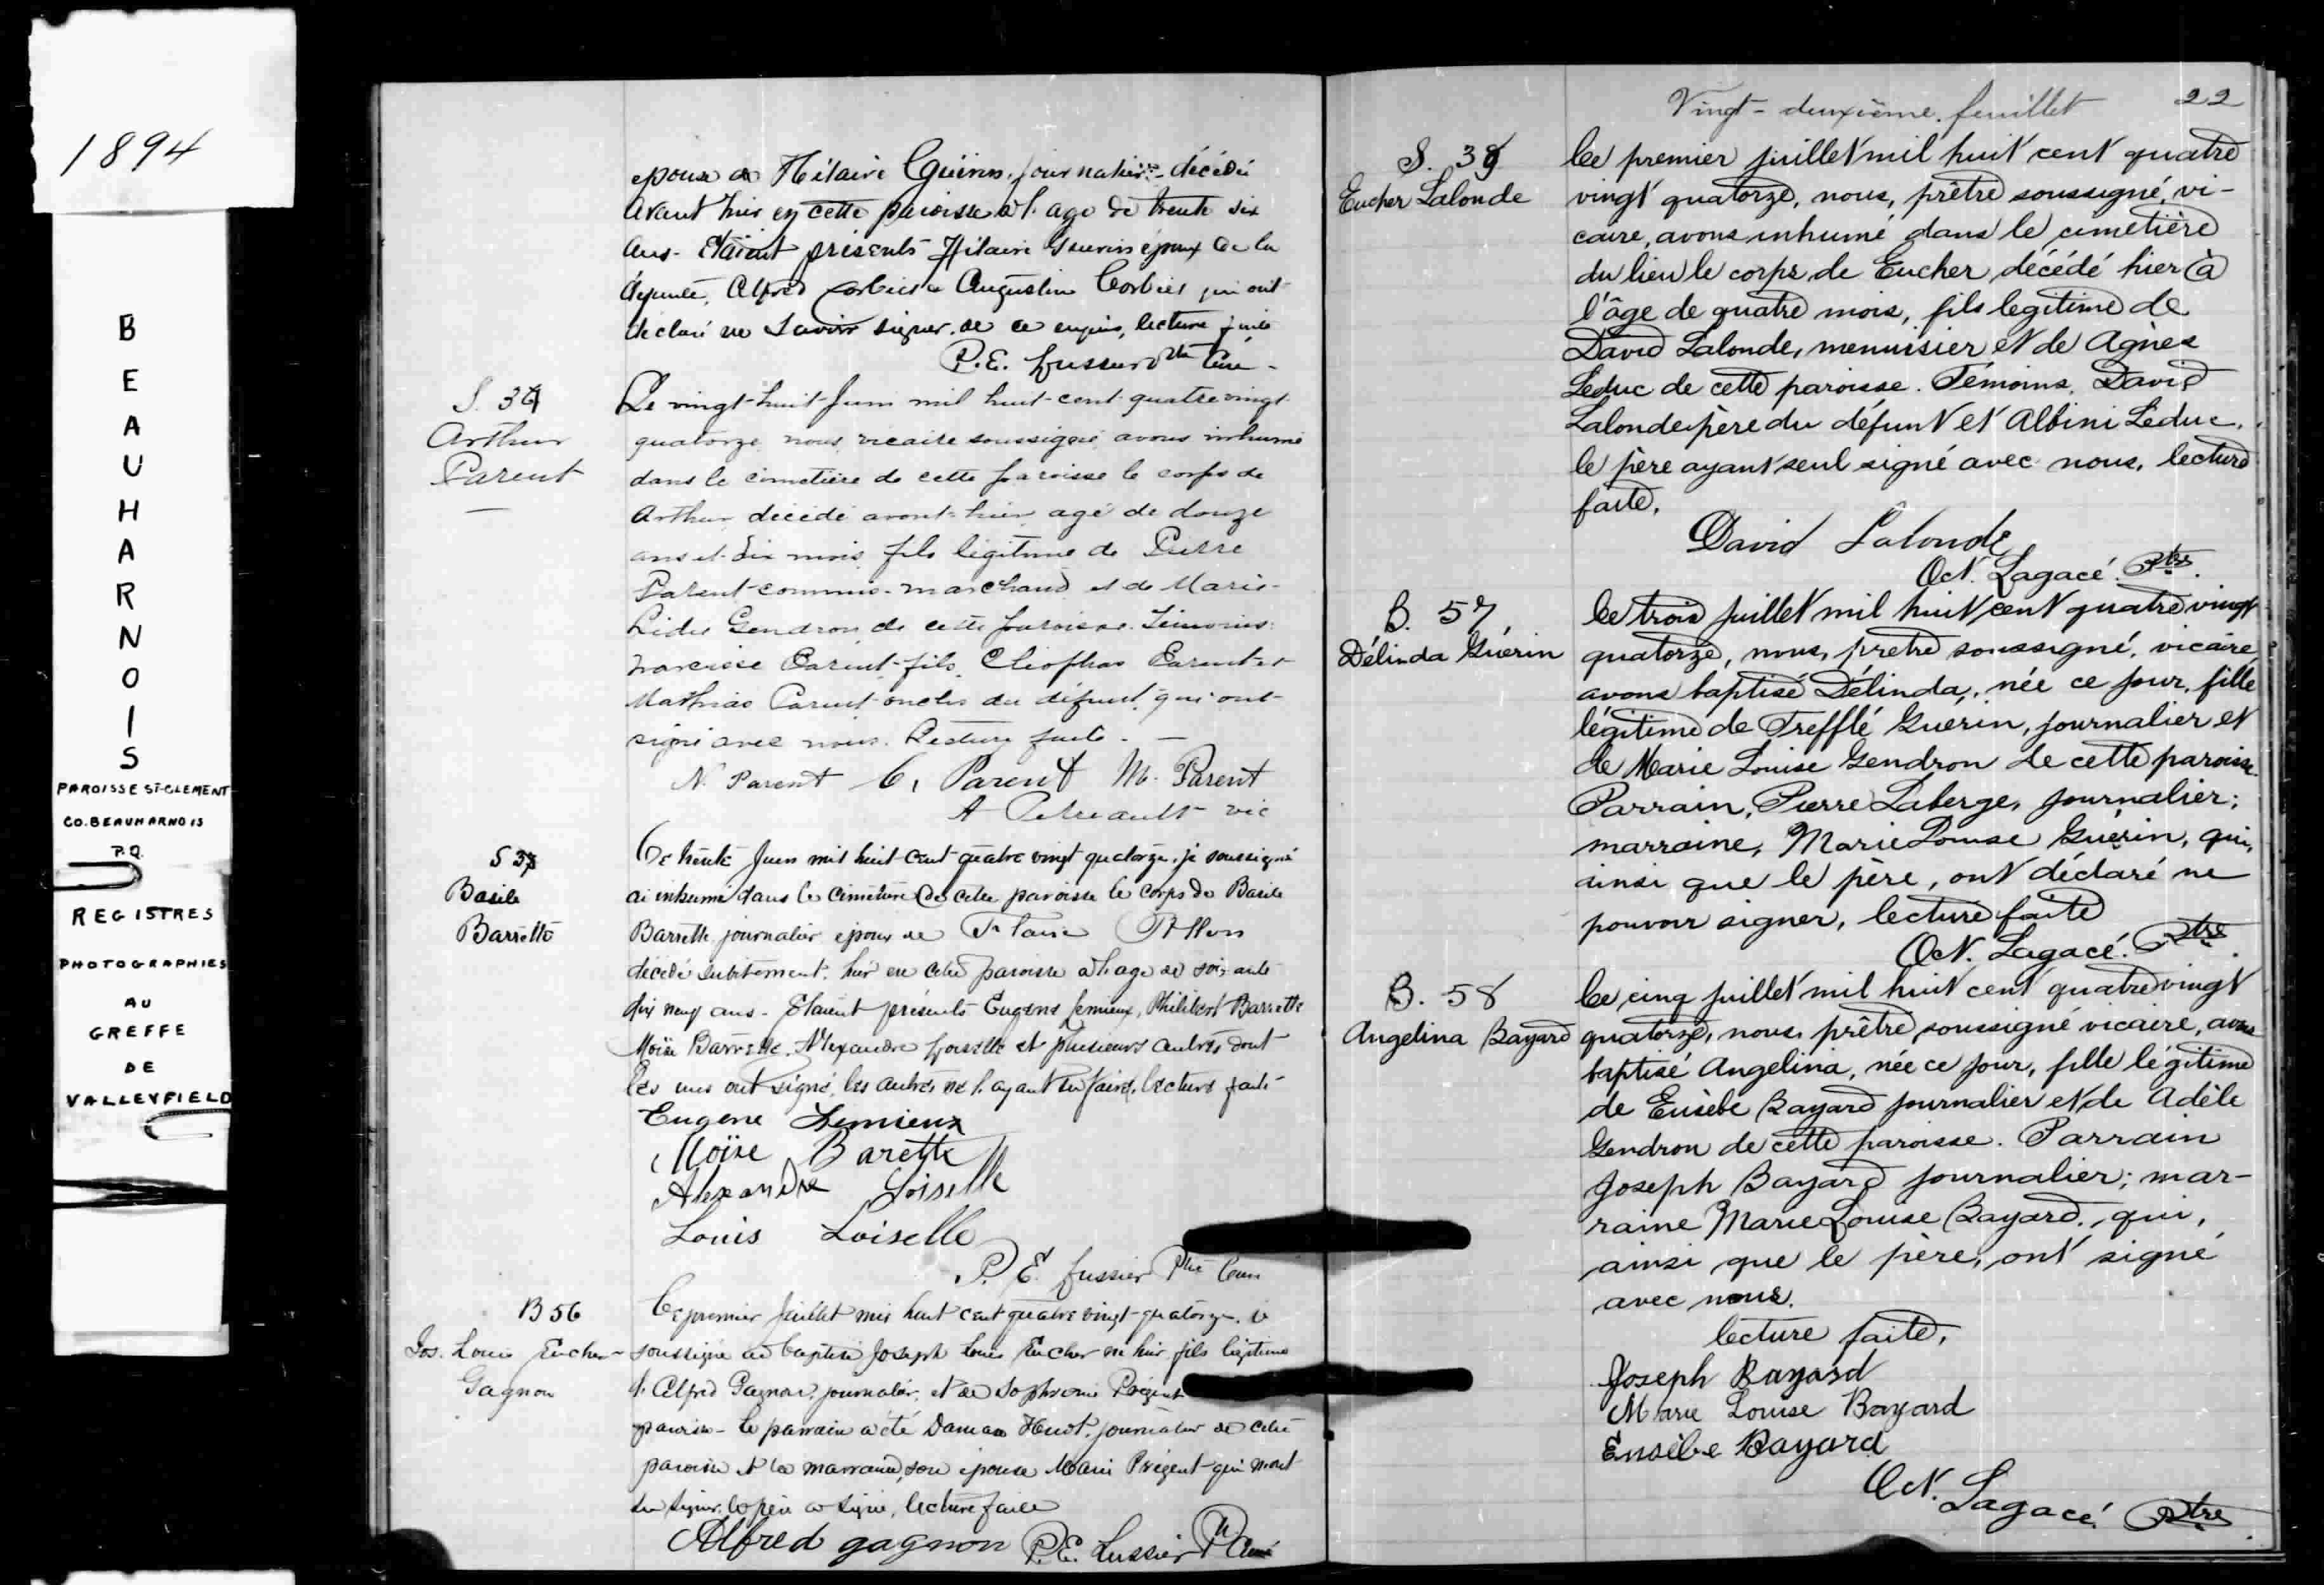 1894
BEAUHARNOIS
PAROISSE ST-CLEMENT
CO. BEAUHARNOIS
P.Q.
REGISTRES
PHOTOGRAPHIES
AU
GREFFE
DE
VALLEYFIELD
epouse de Hilaire Guérin, journalier - décédée
avant hier en cette paroisse à l'age de trente six
ans - Etaient présents Hilaire Guerin époux de la
défunte, Alfred Corbier & Augustin Corbier qui ont
déclaré ne savoir signer. de ce enquis, lecture faite
P.E. Lussier Ptre Curé -
S. 36
Arthur
Parent
Le vingt-huit Juin mil huit-cent-quatre vingt
quatorze nous vicaire soussigné avons inhumé
dans le cimetière de cette paroisse le corps de
Arthur décédé avant-hier agé de douze
ans et dix mois fils légitime de Pierre
Parent commis-marchand et de Marie-
Lidie Gendron de cette paroisse. Témoins:
Narcisse Parent-fils, Cléophas Parent et
Mathias Parent oncles du défunt, qui ont-
signé avec nous. Lecture faite. -
N. Parent C. Parent M. Parent
A Perreault vic
S 37
Basile
Barrette
Ce trente Juin mil huit-cent quatre vingt quatorze, je soussigné
ai inhumé dans le cimetière de cette paroisse le corps de Basile
Barrette, journalier, epoux de
décédé subitement hier en cette paroisse à l'age de soixante
dix neuf ans - Etaient présents Eugene Lemieux, Philibert Barrette
Moïse Barrette, Alexandre Loiselle et plusieurs autres dont
les uns ont signé, les autres ne l'ayant su faire, lecture faite
Eugene Lemieux
Moïse Barette
Alexandre Loiselle
Louis Loiselle
P. E. Lussier Ptre Curé
B 56
Jos. Louis Eucher
Gagnon
Ce premier Juillet mil huit cent quatre vingt-quatorze, je
soussigné ai baptisé Joseph Louis Eucher né hier fils légitime
d'Alfred Gagnon, journalier, et de Sophronie Prégent
paroisse - le parrain a été Damase Huot, journalier de cette
paroisse et la marraine, son épouse Marie Prégent qui n'ont
su signer, le père a signé, lecture faite
Alfred gagnon P.E. Lussier Ptre Curé
Vingt-deuxième feuillet 22
S. 38
Eucher Lalonde
Ce premier juillet mil huit cent quatre
vingt quatorze, nous, prêtre soussigné, vi-
caire, avons inhumé dans le cimetière
du lieu le corps de Eucher, décédé hier à
l'âge de quatre mois, fils legitime de
David Lalonde, menuisier et de Agnès
Leduc de cette paroisse. Témoins, David
Lalonde père du défunt et Albini Leduc,
le père ayant seul signé avec nous, lecture
faite.
David Lalonde
Oct. Lagacé. Ptre.
B. 57
Délinda Guérin
Ce trois juillet mil huit cent quatre vingt
quatorze, nous, pretre soussigné, vicaire,
avons baptisé Délinda, née ce jour, fille
légitime de Trefflé Guérin, journalier et
de Marie Louise Gendron de cette paroisse.
Parrain, Pierre Laberge, journalier;
marraine, Marie Louise Guérin, qui,
ainsi que le père, ont déclaré ne
pouvoir signer, lecture faite
Oct. Lagacé. Ptre.
B. 58
Angelina Bayard
Ce cinq juillet mil huit cent quatre vingt
quatorze, nous, prêtre soussigné vicaire, avons
baptisé Angelina, née ce jour, fille légitime
de Eusèbe Bayard journalier et de Adèle
Gendron de cette paroisse. Parrain
Joseph Bayard journalier; mar-
raine Marie Louise Bayard, qui,
ainsi que le père, ont signé
avec nous.
lecture faite,
Joseph Bayard
Marie Louise Bayard
Eusèbe Bayard
Oct. Lagacé. Ptre.